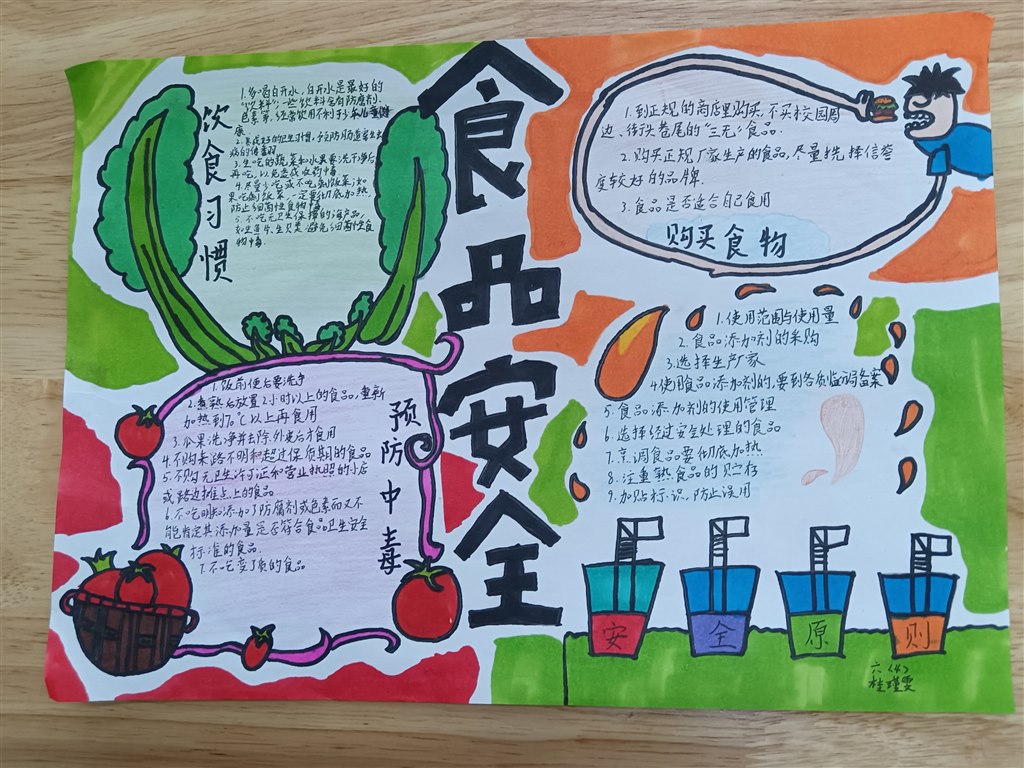 食品安全
饮食习惯
1.多喝白开水,白开水是最好的
"饮料",一些饮料含有防腐剂、
色素等,经常饮用不利于少年儿童健
康
2.养成好的卫生习惯,预防肠道寄生虫
病的传播
3.生吃的蔬菜和水果要洗干净后
再吃,以免造成农药中毒
4.尽量少吃或不吃剩饭菜,如
果吃剩饭菜,一定要彻底加热
防止细菌性食物中毒
5.不吃无卫生保障的海产品,
如生鱼片、生贝类,避免细菌性食
物中毒
1.到正规的商店里购买,不买校园周
边、街头巷尾的"三无"食品.
2.购买正规厂家生产的食品,尽量选择信誉
度较好的品牌.
3.食品是否适合自己食用
购买食物
预防中毒
1.饭前便后要洗净
2.煮熟后放置2小时以上的食品,重新
加热到70℃以上再食用
3.瓜果洗净并去除外皮后才食用
4.不购来路不明和超过保质期的食品
5.不购无卫生许可证和营业热照的小店
或路边摊点上的食品
6.不吃明知添加了防腐剂或色素而又不
能肯定其添加量是否符合食品卫生安全
标准的食品.
7.不吃变了质的食品
1.使用范围与使用量
2.食品添加剂的采购
3.选择生产厂家
4.使用食品添加剂的,要到各质监部备案
5.食品添加剂的使用管理
6.选择经过安全处理的食品
7.烹调食品要彻底加热
8.注重熟食品的贮存
9.加贴标识,防止误用
安全原则
六〈4〉
桂瑾雯